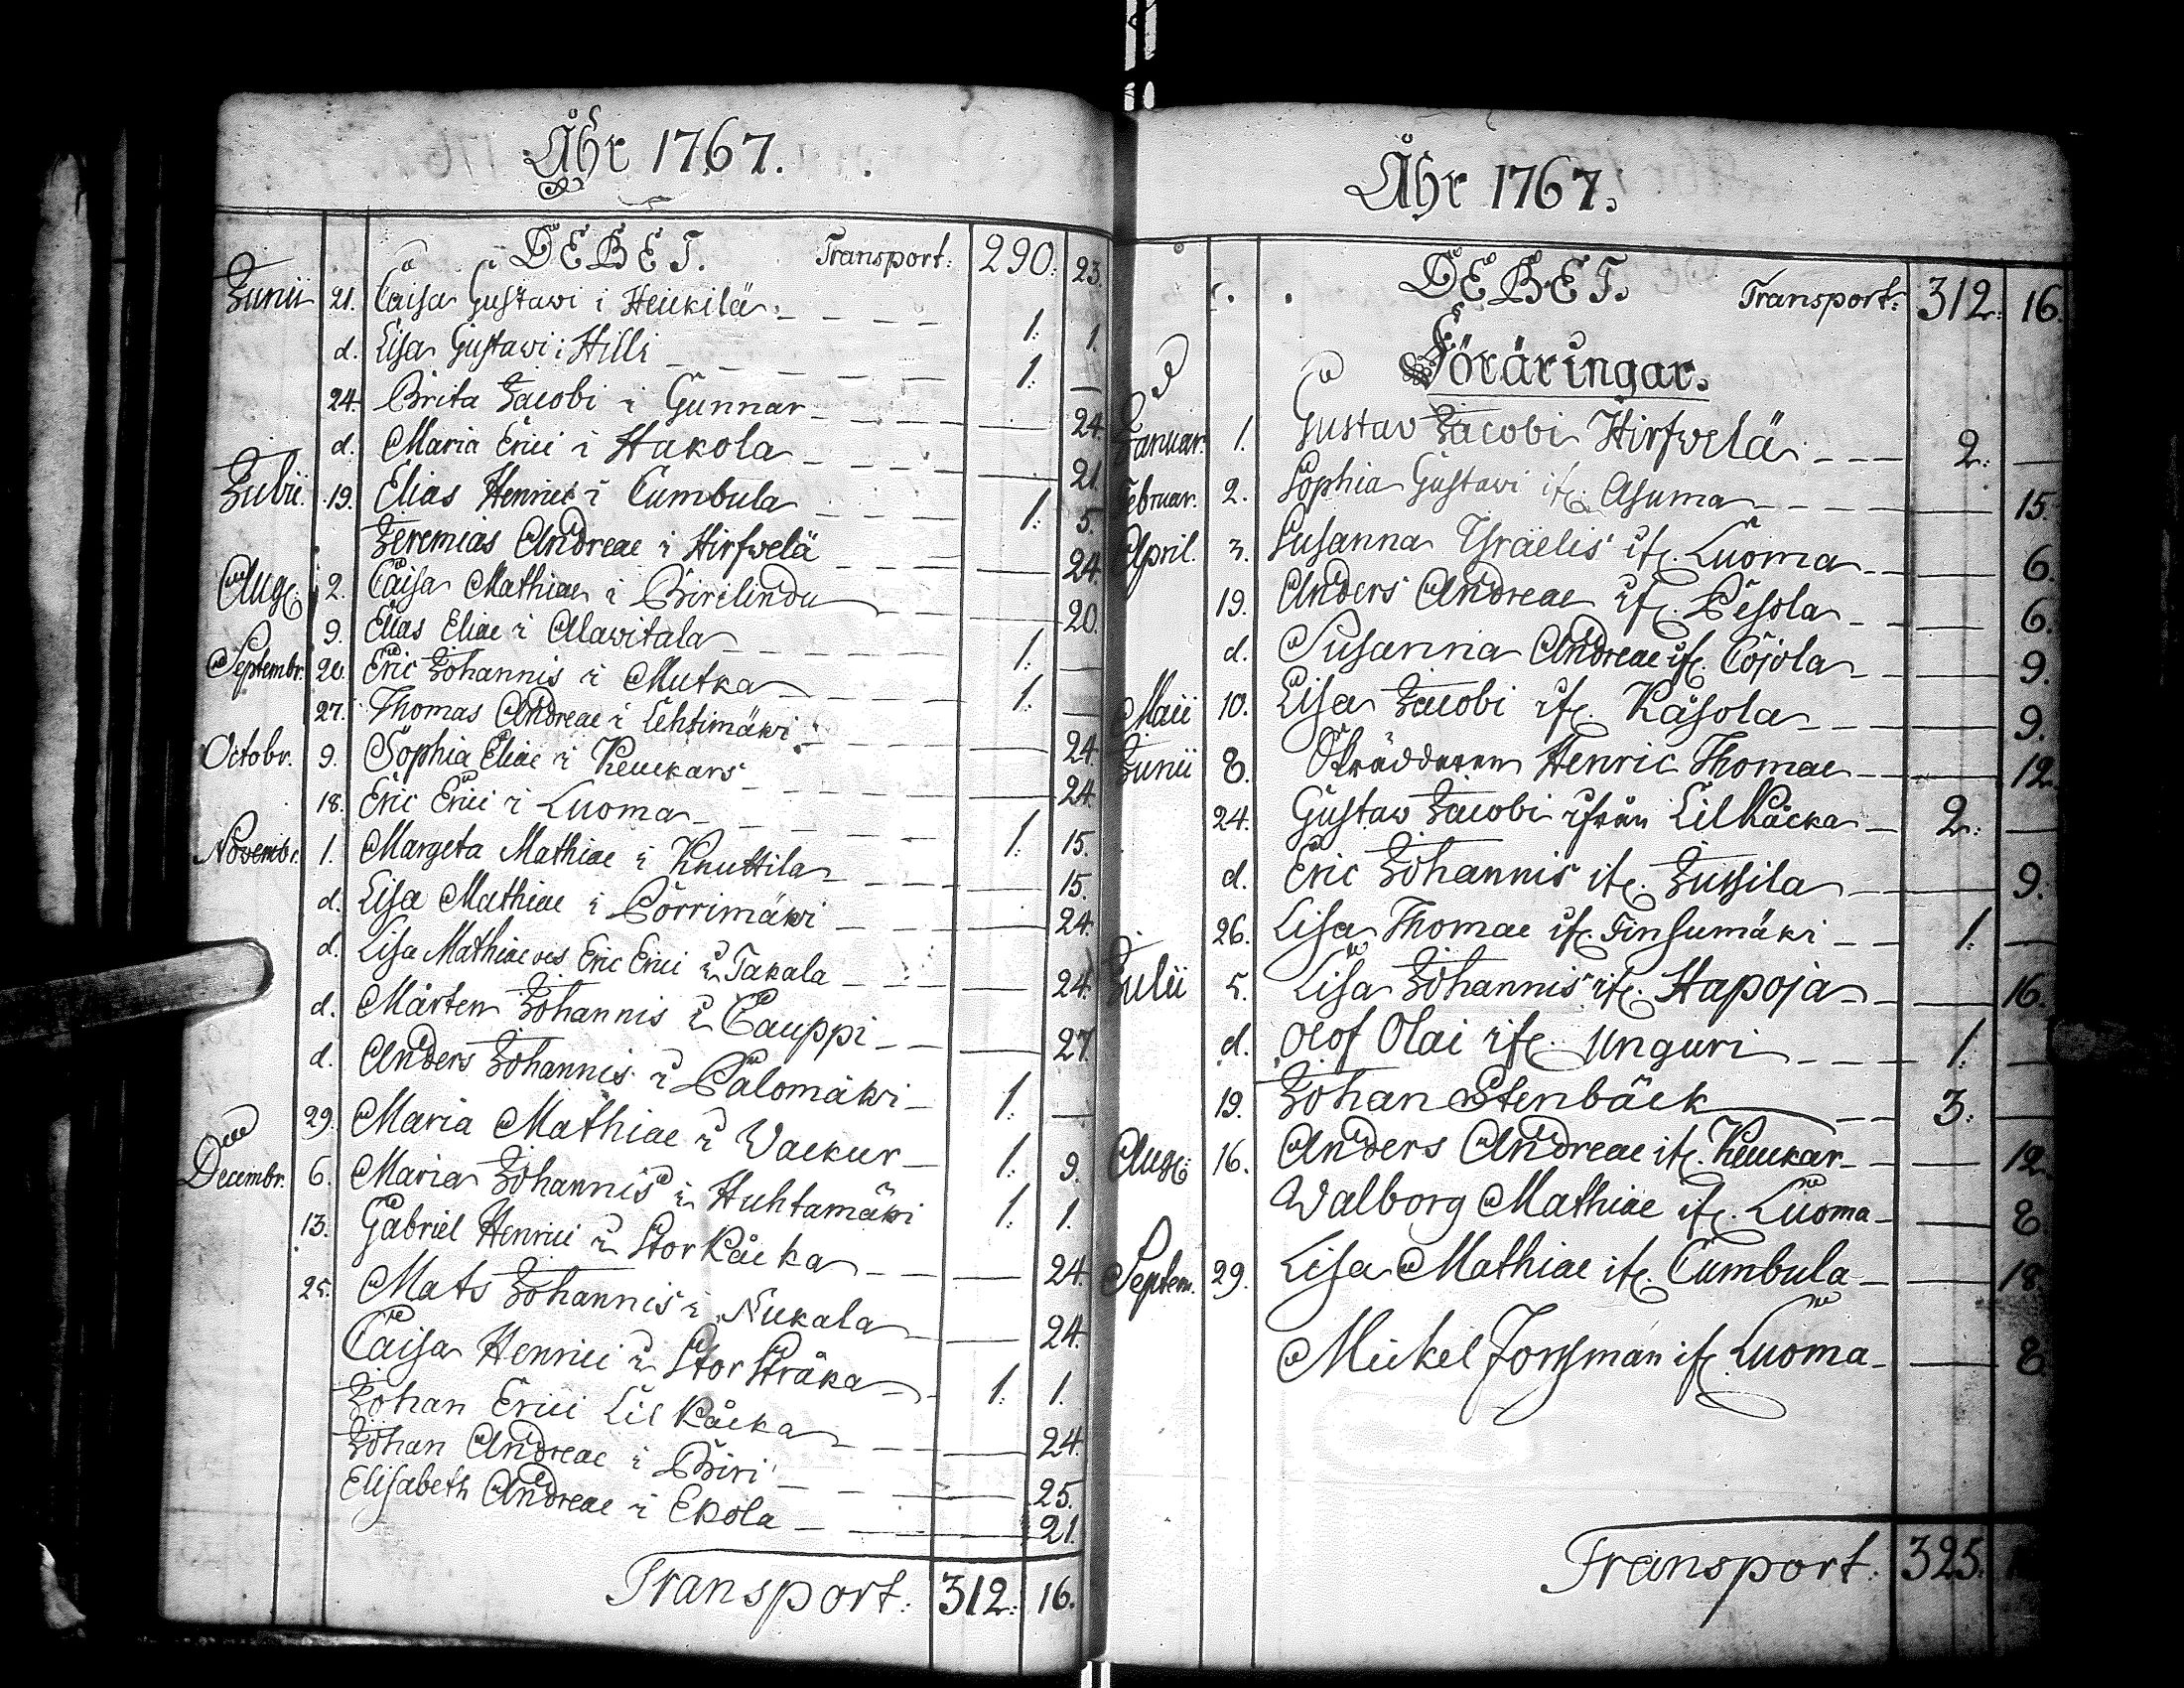 Åhr 1767.
DEBET. Transport: 290: 23.
Junii 21. Caisa Gustavi i Heickilä 1: 1.
d. Lisa Gustavi i Hilli 1: —
24. Brita Jacobi i Gunnar 24.
d. Maria Erici i Hakola 21.
Julii 19. Elias Henrici i Cumbula 1: 5.
Jeremias Andreae i Hirfwelä 24.
Aug: 2. Caisa Mathiae i Birilindu 20.
9. Elias Eliae i Alawitala 1: —
Septembr. 20. Eric Johannis i Mutka 1: —
27. Thomas Andreae i Lehtimäki 24.
Octobr. 9. Sophia Eliae i Keuckars 24.
18. Eric Erici i Luoma 1: 15.
Novembr. 1. Margeta Mathiae i Knuttila 15.
d. Lisa Mathiae i Pörrimäki 24.
d. Lisa Mathiae Eric Erici i Takala 24.
d. Mårten Johannis i Cauppi 27.
d. Anders Johannis i Palomäki 1: —
29. Maria Mathiae i Wackur 1: 9.
Decembr. 6. Maria Johannis i Huhtamäki 1: 1.
13. Gabriel Henrici i Stor Kåcka 24.
25. Mats Johannis i Nukala 24.
Caisa Henrici i Stor Stråka 1: 1.
Johan Erici Lil Kåcka 24.
Johan Andreae i Biri 25.
Elisabeth Andreae i Ekola 21.
Transport: 312: 16.
Åhr 1767.
DEBET. Transport: 312: 16.
Föräringar.
Januar. 1. Gustav Jacobi Hirfwelä 2: —
Februar. 2. Sophia Gustavi ifr. Asuma 15.
April. 3. Susanna Israelis ifr. Luoma 6.
19. Anders Andreae ifr. Pesola 6.
d. Susanna Andreae ifr. Cojola 9.
Maii 10. Lisa Jacobi ifr. Käsola 9.
Junii 8. Skräddaren Henric Thomae 12.
24. Gustav Jacobi ifrån Lil Kåcka 2: —
d. Eric Johannis ifr. Jussila 9.
26. Lisa Thomae ifr. Finsumäki 1: —
Julii 5. Lisa Johannis ifr. Hapoja 16.
d. Olof Olai ifr. Unguri 1: —
19. Johan Stenbäck 3: —
Aug: 16. Anders Andreae ifr. Keuckar 12.
Walborg Mathiae ifr. Luoma 8.
Septem. 29. Lisa Mathiae ifr. Cumbula 18.
Mickel Forssman ifr. Luoma 8.
Transport: 325.